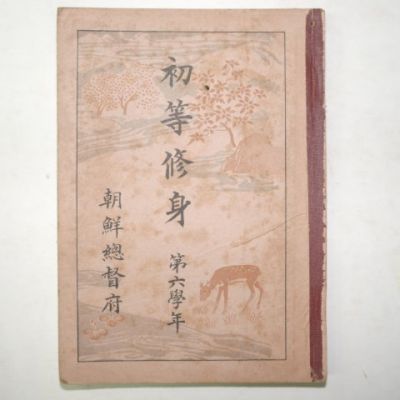 初等修身
第六學年
朝鮮總督府